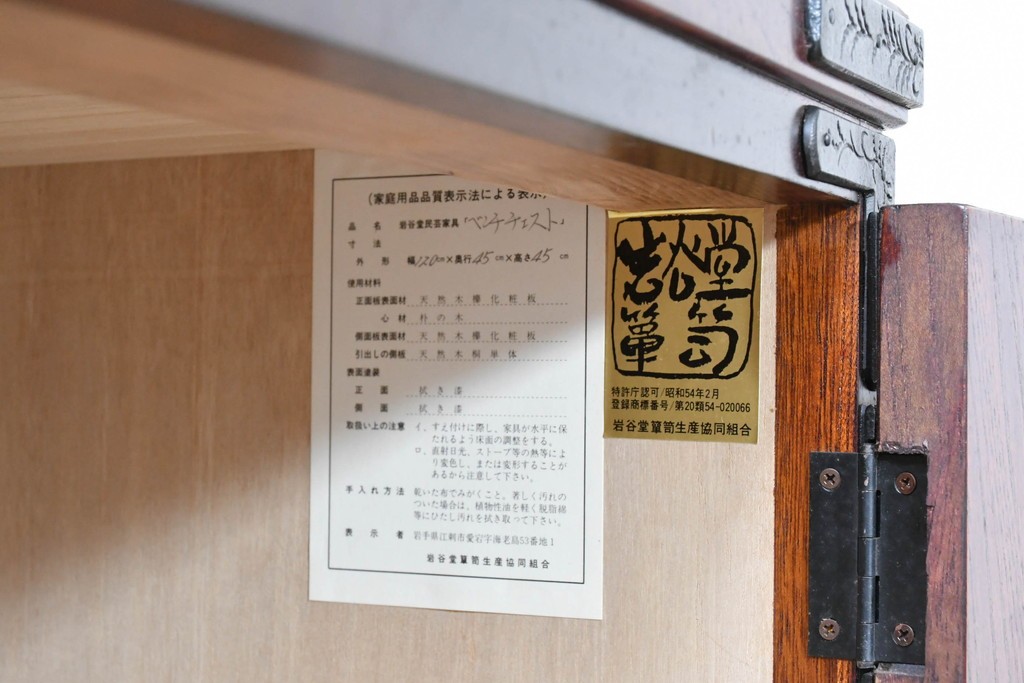 (家庭用品品質表示法による表示)
品名 岩谷堂民芸家具「ベンチチェスト」
寸法
外形 幅120cm×奥行45cm×高さ45cm
使用材料
正面板表面材 天然木欅化粧板
心材 朴の木
側面板表面材 天然木欅化粧板
引出しの側板 天然木桐単体
表面塗装
正面 拭き漆
側面 拭き漆
取扱い上の注意 イ、すえ付けに際し、家具が水平に保
たれるよう床面の調整をする。
ロ、直射日光、ストーブ等の熱等によ
り変色し、または変形することが
あるから注意して下さい。
手入れ方法 乾いた布でみがくこと。著しく汚れの
ついた場合は、植物性油を軽く脱脂綿
等にひたし汚れを拭き取って下さい。
表示者 岩手県江刺市愛宕字海老島53番地1
岩谷堂簞笥生産協同組合
岩谷堂
簞笥
特許庁認可/昭和54年2月
登録商標番号/第20類54-020066
岩谷堂簞笥生産協同組合